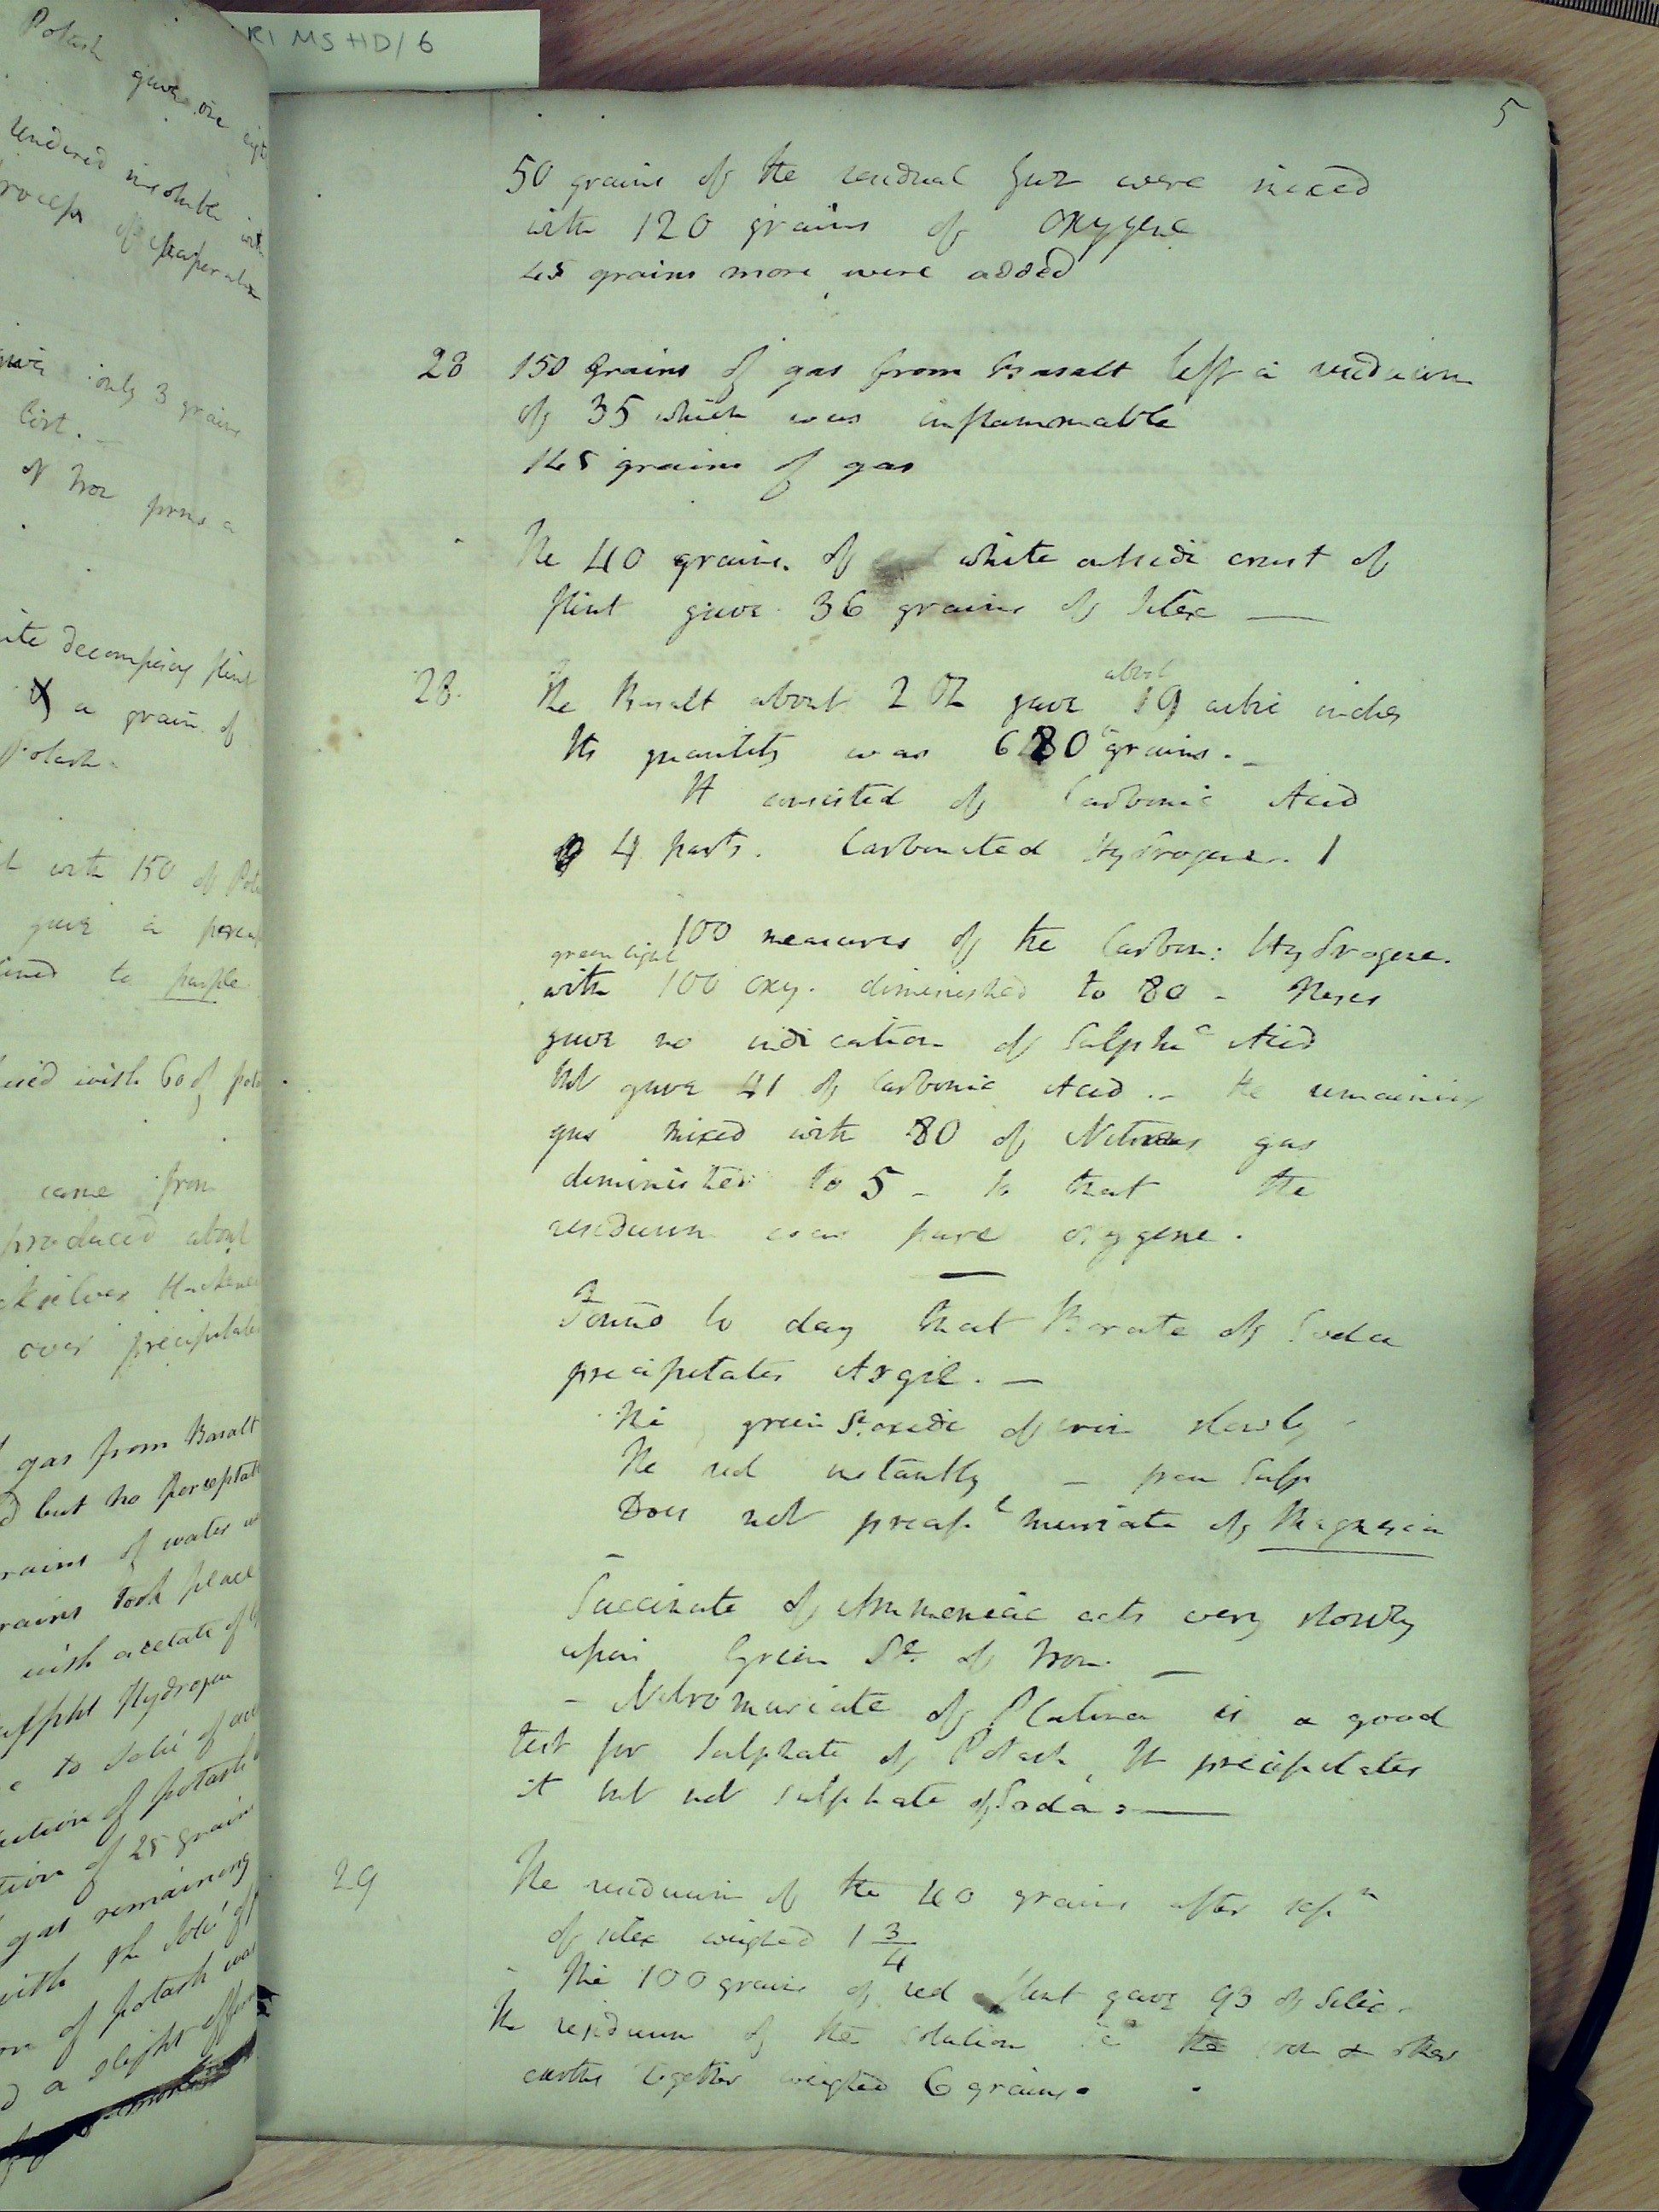 RI MS HD/6
5
50 grains of the residual gas were mixed
with 120 grains of oxygene
45 grains more were added
28 150 grains of gas from Basalt left a residuum
of 35 which was inflammable
145 grains of gas
The 40 grains of white outside crust of
flint gave 36 grains of silex —
28. The Basalt about 2 oz gave about 19 cubic inches
Its quantity was 680 grains. –
It consisted of Carbonic Acid
4 parts. Carbonated Hydrogene. 1
100 measures of the Carbon: Hydrogene.
green light
with 100 oxy. diminished to 80 – These
gave no indication of Sulphc Acid
but gave 41 of Carbonic Acid. – the remaining
gas mixed with 80 of Nitrous gas
diminished to 5 – so that the
residuum was pure oxygene.
Found to day that Borate of Soda
precipitates Argil. —
The green St. oxide of iron slowly
The red instantly –
Does not precip. muriate of Magnesia
Succinate of Ammoniac acts very slowly
upon Green St. of Iron. –
– Nitromuriate of Platina is a good
test for Sulphate of Potash, It precipitates
it but not sulphate of Soda. —
29 The residuum of the 40 grains after sepn
of silex weighed 1 3/4
The 100 grains of red flint gave 93 of Silex.
The residuum of the solution the iron & other
earths together weighed 6 grains.
Potash gave one
rendered insoluble
process of evaporation
gave only 3 grains
of Iron forms a
decomposing flint
a grain of
Potash.
with 150 of
gave a
to purple
with 60 of
came from
produced about
over precipitate
gas from Basalt
but no perceptable
grains of water
took place
with acetate of
Hydrogen
of potash
of 25 grains
gas remaining
with
of potash was
a slight